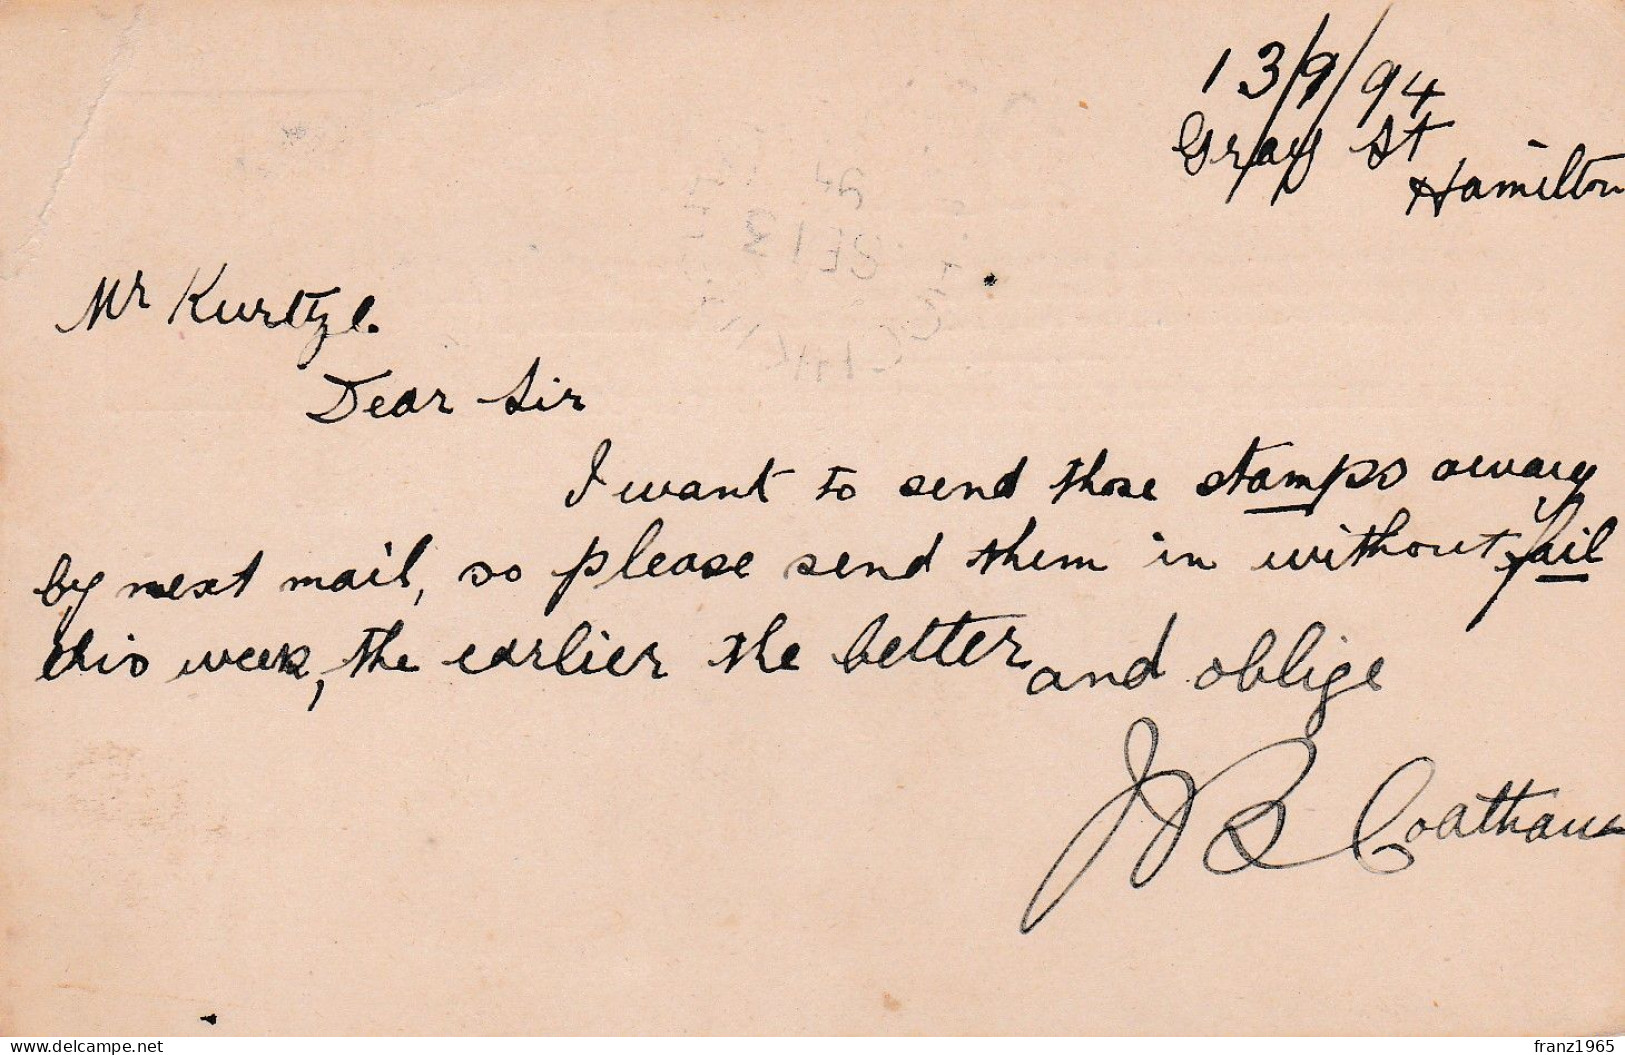 13/9/94
Gray St
Hamilton
Mr Kurtze.
Dear Sir
I want to send those stamps away
by next mail, so please send them in without fail
this week, the earlier the better and oblige
J B
delcampe.net
franz1965